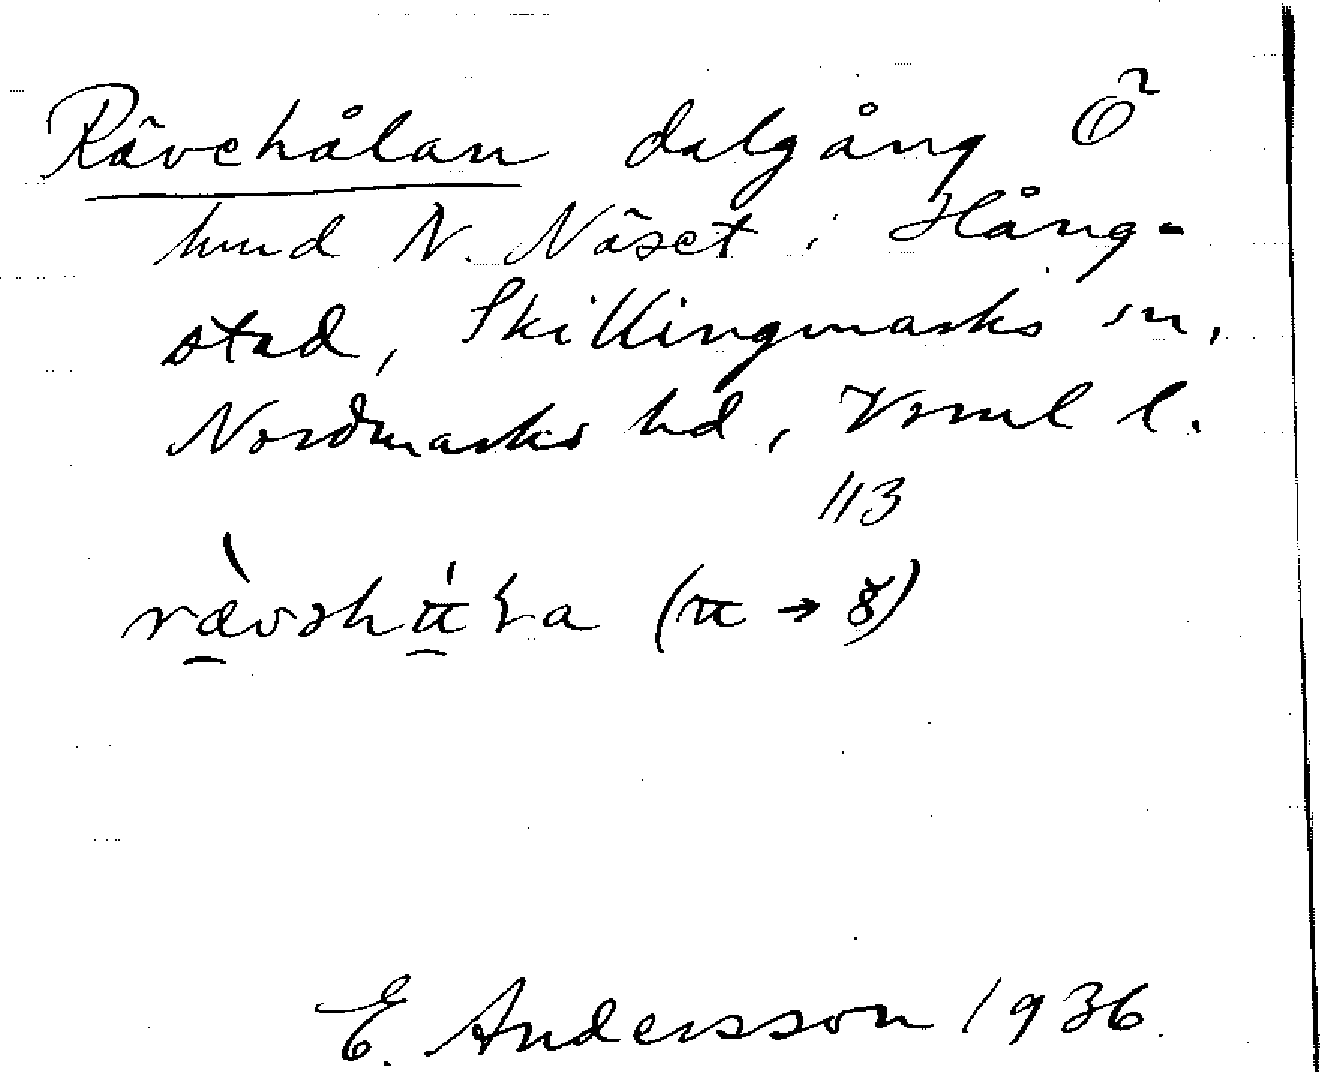 Rävehålan dalgång Ö
hmd N. Näset i Hång-
stad, Skillingmarks sn,
Nordmarks hd, Vrml l.
113
E. Andersson 1936.